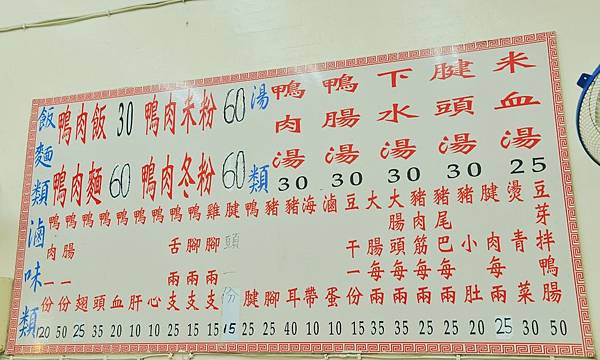 飯麵類
鴨肉飯 30
鴨肉米粉 60
鴨肉麵 60
鴨肉冬粉 60
湯類
鴨肉湯 30
鴨腸湯 30
下水湯 30
腱頭湯 30
米血湯 25
滷味類
鴨肉一份 120
鴨腸一份 50
鴨翅 25
鴨頭 35
鴨血 20
鴨肝 10
鴨心 10
鴨舌兩支 25
鴨腳兩支 15
雞腳兩支 15
腱頭一份 15
鴨腱 25
豬腳 25
豬耳 30
海帶 10
滷蛋 10
豆干一份 15
大腸每兩 35
大腸頭每兩 35
豬肉筋每兩 25
豬尾巴每兩 25
豬小肚 20
腱肉每兩 25
燙青菜 30
豆芽拌鴨腸 50